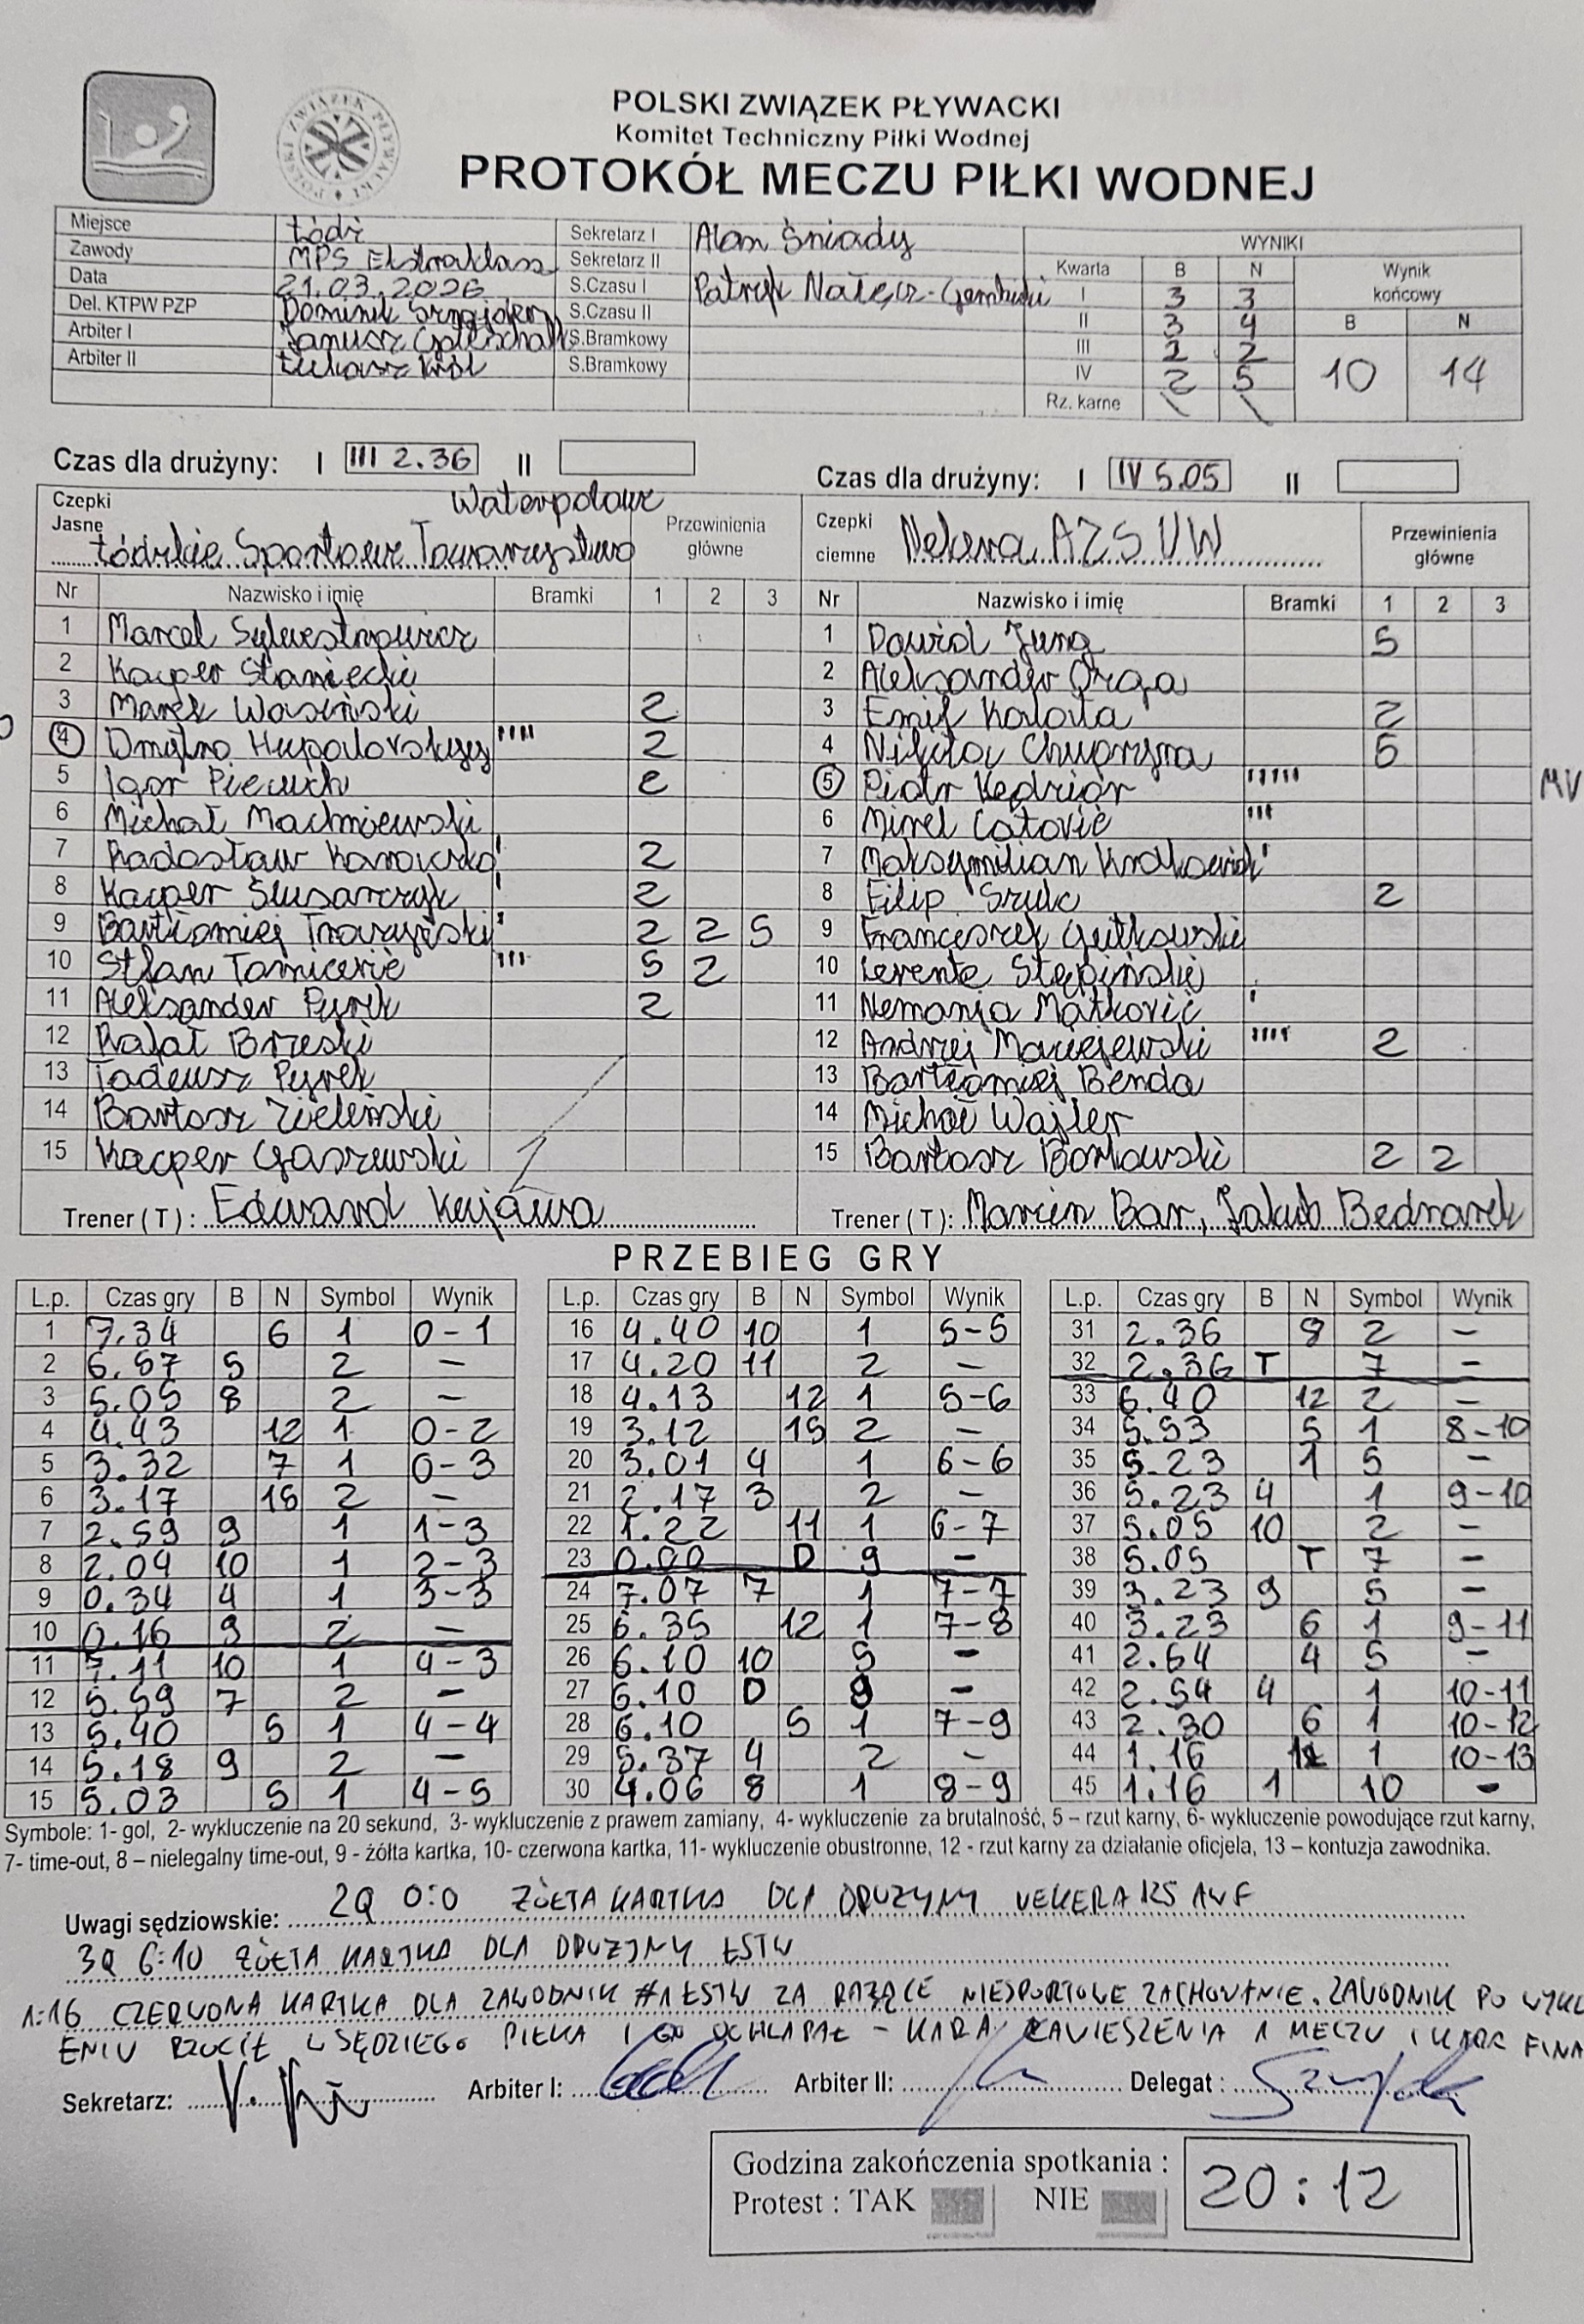 POLSKI ZWIĄZEK PŁYWACKI
Komitet Techniczny Piłki Wodnej
PROTOKÓŁ MECZU PIŁKI WODNEJ
Miejsce Łódź Sekretarz I Alan Śniady WYNIKI
Zawody MPS Ekstraklasa Sekretarz II
Data 21.03.2026 S.Czasu I Patryk Nałęcz-Gembicki
Del. KTPW PZP Dominik S.Czasu II
Arbiter I Janusz S.Bramkowy
Arbiter II Łukasz Król S.Bramkowy
Kwarta B N Wynik końcowy
I 3 3
II 3 4 B N
III 2 2
IV 2 5 10 14
Rz. karne \ \
Czas dla drużyny: I III 2.36 II
Czas dla drużyny: I IV 5.05 II
Czepki Jasne Łódzkie Sportowe Towarzystwo Waterpolowe Przewinienia główne
Czepki ciemne AZS UW Przewinienia główne
Nr Nazwisko i imię Bramki 1 2 3
1 Marcel Sylwestrowicz
2 Kacper Staniecki
3 Marek Wasiński 2
4 Dmytro '''' 2
5 Igor Pieciuch e
6 Michał Machniewski
7 Radosław ' 2
8 Kacper Ślusarczyk ' 2
9 Bartłomiej ' 2 2 5
10 Stefan Tomicevic ''' 5 2
11 Aleksander Pyrek 2
12 Rafał Brzeski
13 Tadeusz Pyrek
14 Bartosz Zieleński
15 Kacper Gaszewski
Trener ( T ) : Edward Kujawa
Nr Nazwisko i imię Bramki 1 2 3
1 Dawid Jung 5
2 Aleksander Orga
3 Emil Kalota 2
4 Nikita Chupryna 5
5 Piotr Kędzior ''''' MV
6 Mirel Catović '''
7 Maksymilian '
8 Filip Szulc 2
9 Franciszek Gutkowski
10 Levente Stępiński
11 Nemanja Matković '
12 Andrzej Maciejewski '''' 2
13 Bartłomiej Benda
14 Michał Wajler
15 Bartosz Borkowski 2 2
Trener ( T ): Marcin Bar, Jakub Bednarek
PRZEBIEG GRY
L.p. Czas gry B N Symbol Wynik
1 7.34 6 1 0-1
2 6.57 5 2 –
3 5.05 8 2 –
4 4.43 12 1 0-2
5 3.32 7 1 0-3
6 3.17 15 2 –
7 2.59 9 1 1-3
8 2.04 10 1 2-3
9 0.34 4 1 3-3
10 0.16 9 2 –
11 7.11 10 1 4-3
12 5.59 7 2 –
13 5.40 5 1 4-4
14 5.18 9 2 –
15 5.03 5 1 4-5
L.p. Czas gry B N Symbol Wynik
16 4.40 10 1 5-5
17 4.20 11 2 –
18 4.13 12 1 5-6
19 3.12 15 2 –
20 3.01 4 1 6-6
21 2.17 3 2 –
22 1.22 11 1 6-7
23 0.00 D 9 –
24 7.07 7 1 7-7
25 6.35 12 1 7-8
26 6.10 10 5 –
27 6.10 D 9 –
28 6.10 5 1 7-9
29 5.37 4 2 –
30 4.06 8 1 8-9
L.p. Czas gry B N Symbol Wynik
31 2.36 8 2 –
32 2.36 T 7 –
33 6.40 12 2 –
34 5.53 5 1 8-10
35 5.23 1 5 –
36 5.23 4 1 9-10
37 5.05 10 2 –
38 5.05 T 7 –
39 3.23 9 5 –
40 3.23 6 1 9-11
41 2.54 4 5 –
42 2.54 4 1 10-11
43 2.30 6 1 10-12
44 1.16 12 1 10-13
45 1.16 1 10 –
Symbole: 1- gol, 2- wykluczenie na 20 sekund, 3- wykluczenie z prawem zamiany, 4- wykluczenie za brutalność, 5 – rzut karny, 6- wykluczenie powodujące rzut karny,
7- time-out, 8 – nielegalny time-out, 9 - żółta kartka, 10- czerwona kartka, 11- wykluczenie obustronne, 12 - rzut karny za działanie oficjela, 13 – kontuzja zawodnika.
Uwagi sędziowskie: 2Q 0:0 ŻÓŁTA KARTKA DLA DRUŻYNY
3Q 6:10 ŻÓŁTA KARTKA DLA DRUŻYNY ŁSTW
1:16 CZERWONA KARTKA DLA ZAWODNIK #1 ŁSTW ZA RAŻĄCE NIESPORTOWE ZACHOWANIE. ZAWODNIK PO WYKL
ENIU RZUCIŁ W SĘDZIEGO PIŁKĄ I GO OCHLAPAŁ – KARA ZAWIESZENIA 1 MECZU I KARA FINA
Sekretarz: Arbiter I: Arbiter II: Delegat :
Godzina zakończenia spotkania : 20:12
Protest : TAK NIE